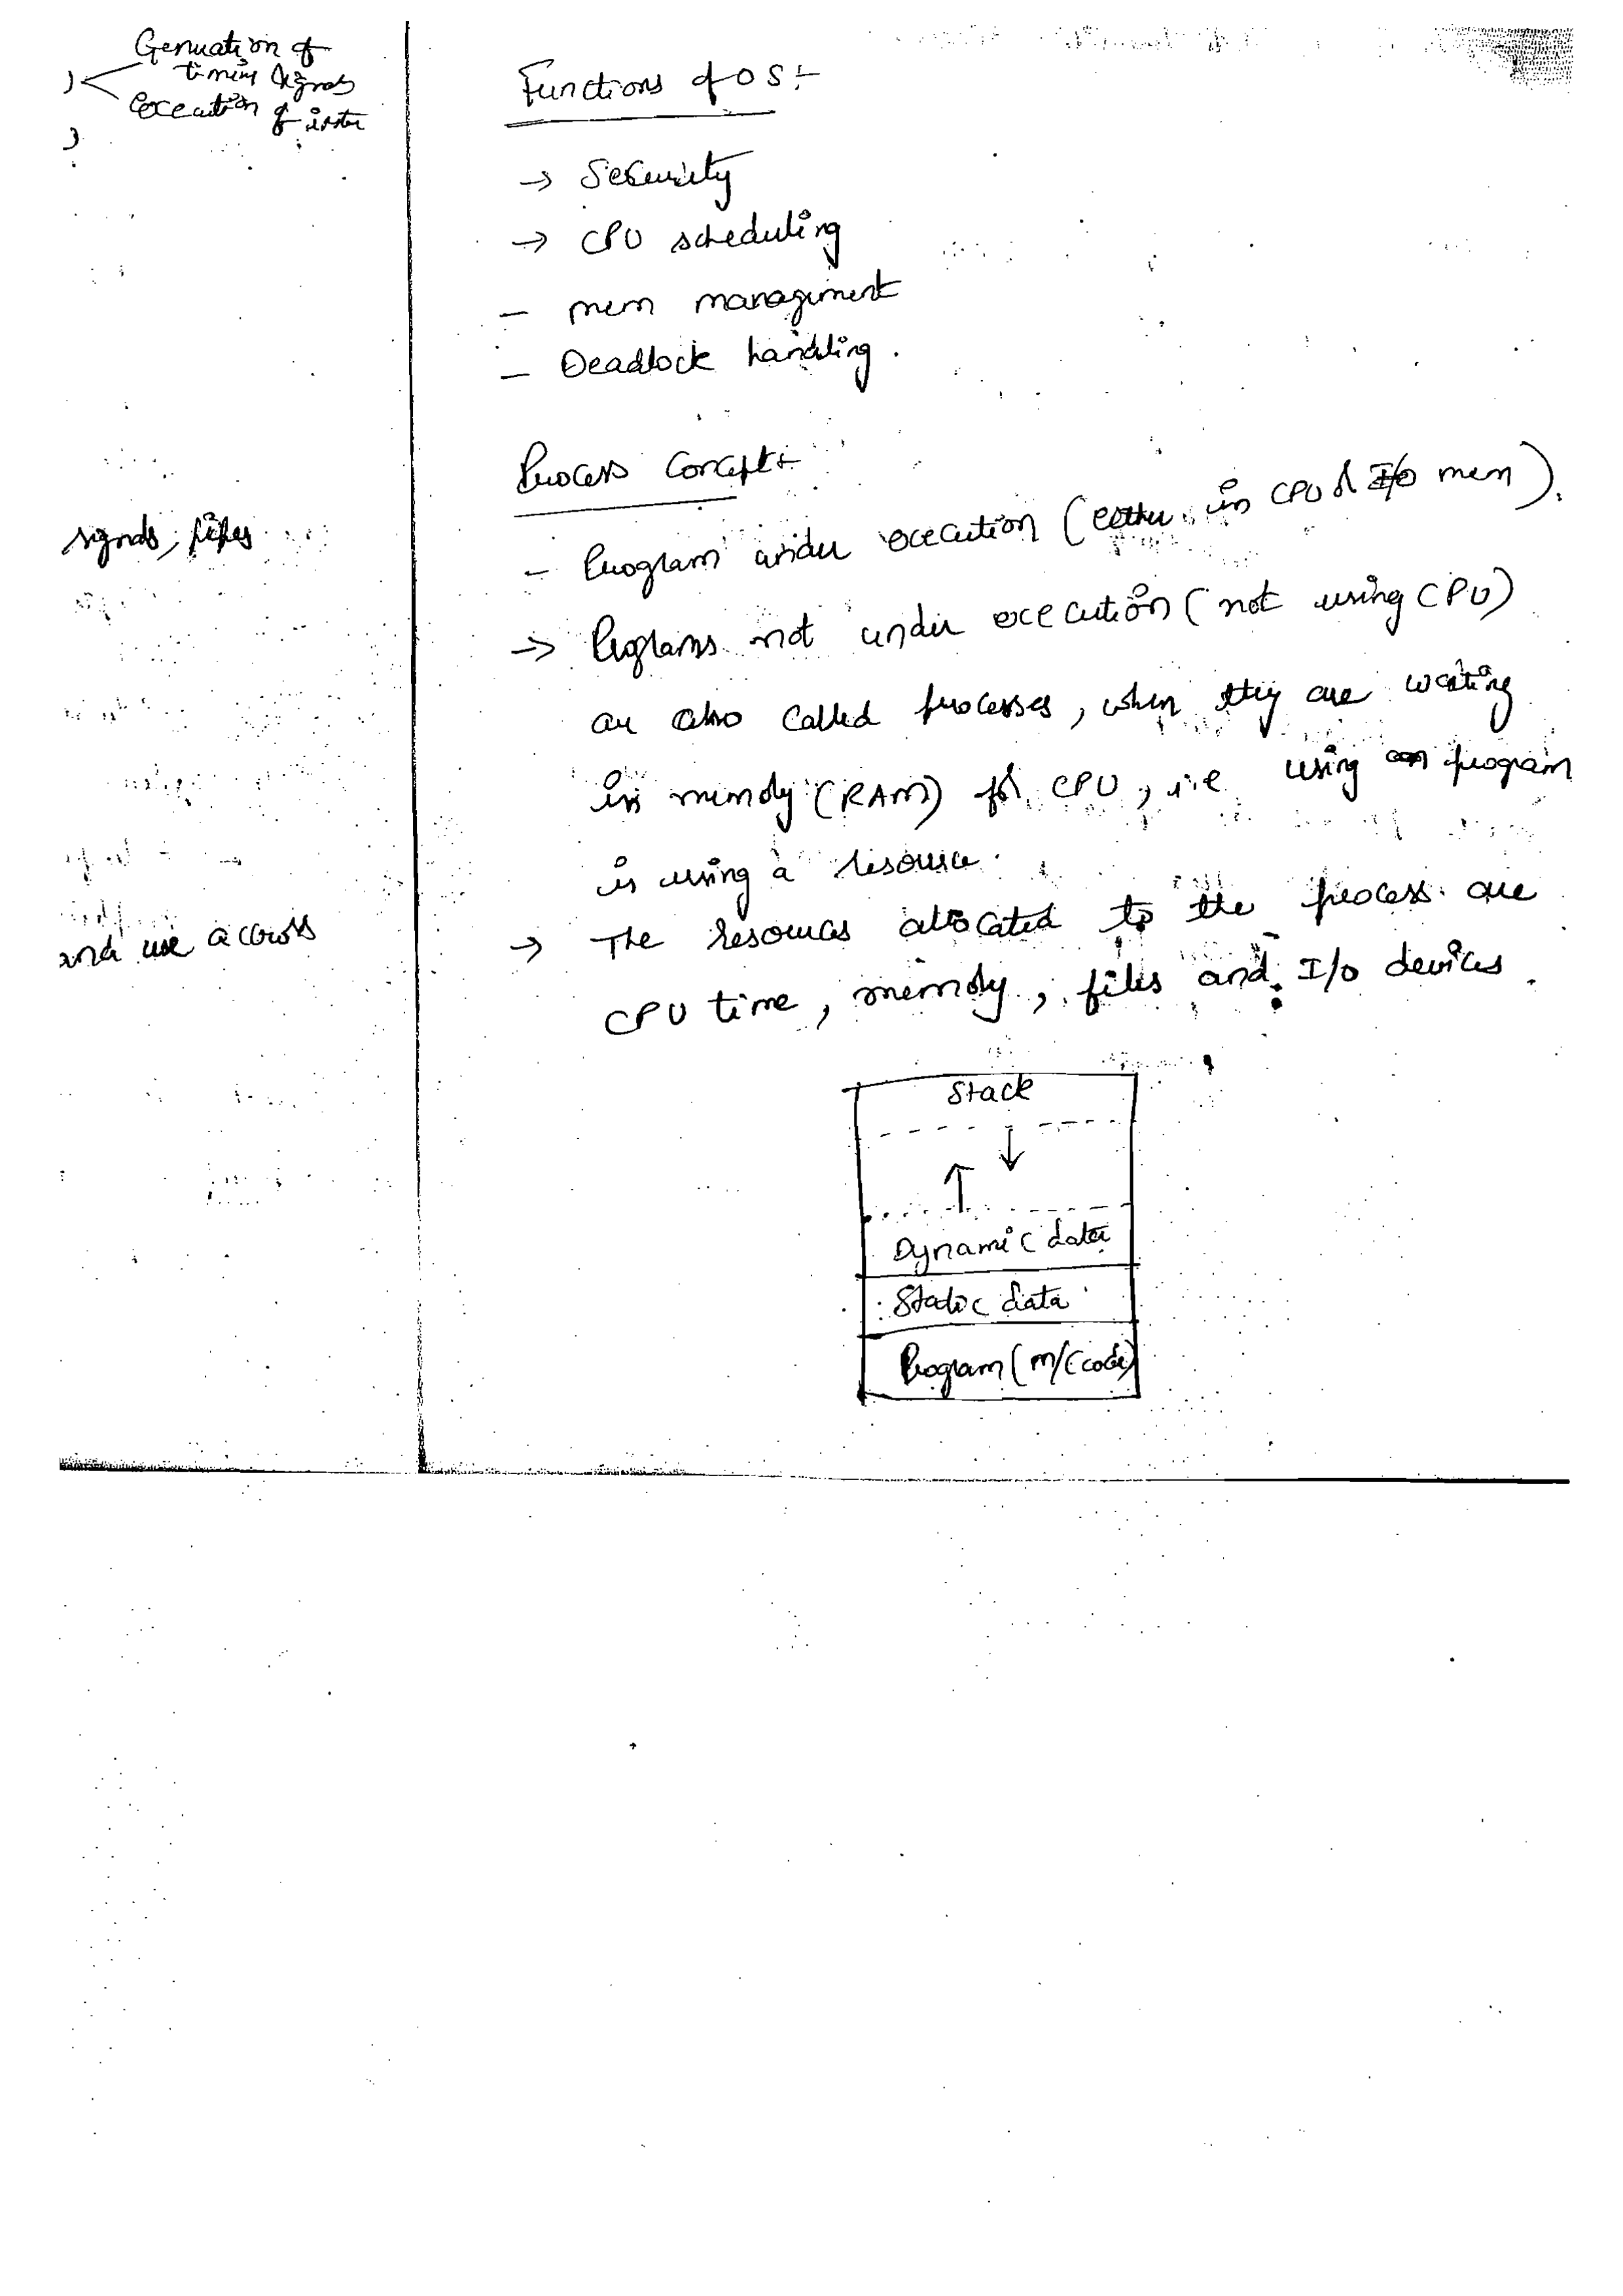 Generation of
timing signals
execution of instr
signals, pipes
and use across
Functions of OS :-
→ Security
→ CPU scheduling
- mem management
- Deadlock handling.
Process Concept :-
- Program under execution (either in CPU or I/O mem).
→ Programs not under execution (not using CPU)
are also called processes, when they are waiting
in memory (RAM) for CPU, i.e using program
is using a resource.
→ The resources allocated to the process are
CPU time, memory, files and I/O devices.
Stack
↓
↑
Dynamic data
Static data
Program (m/c code)